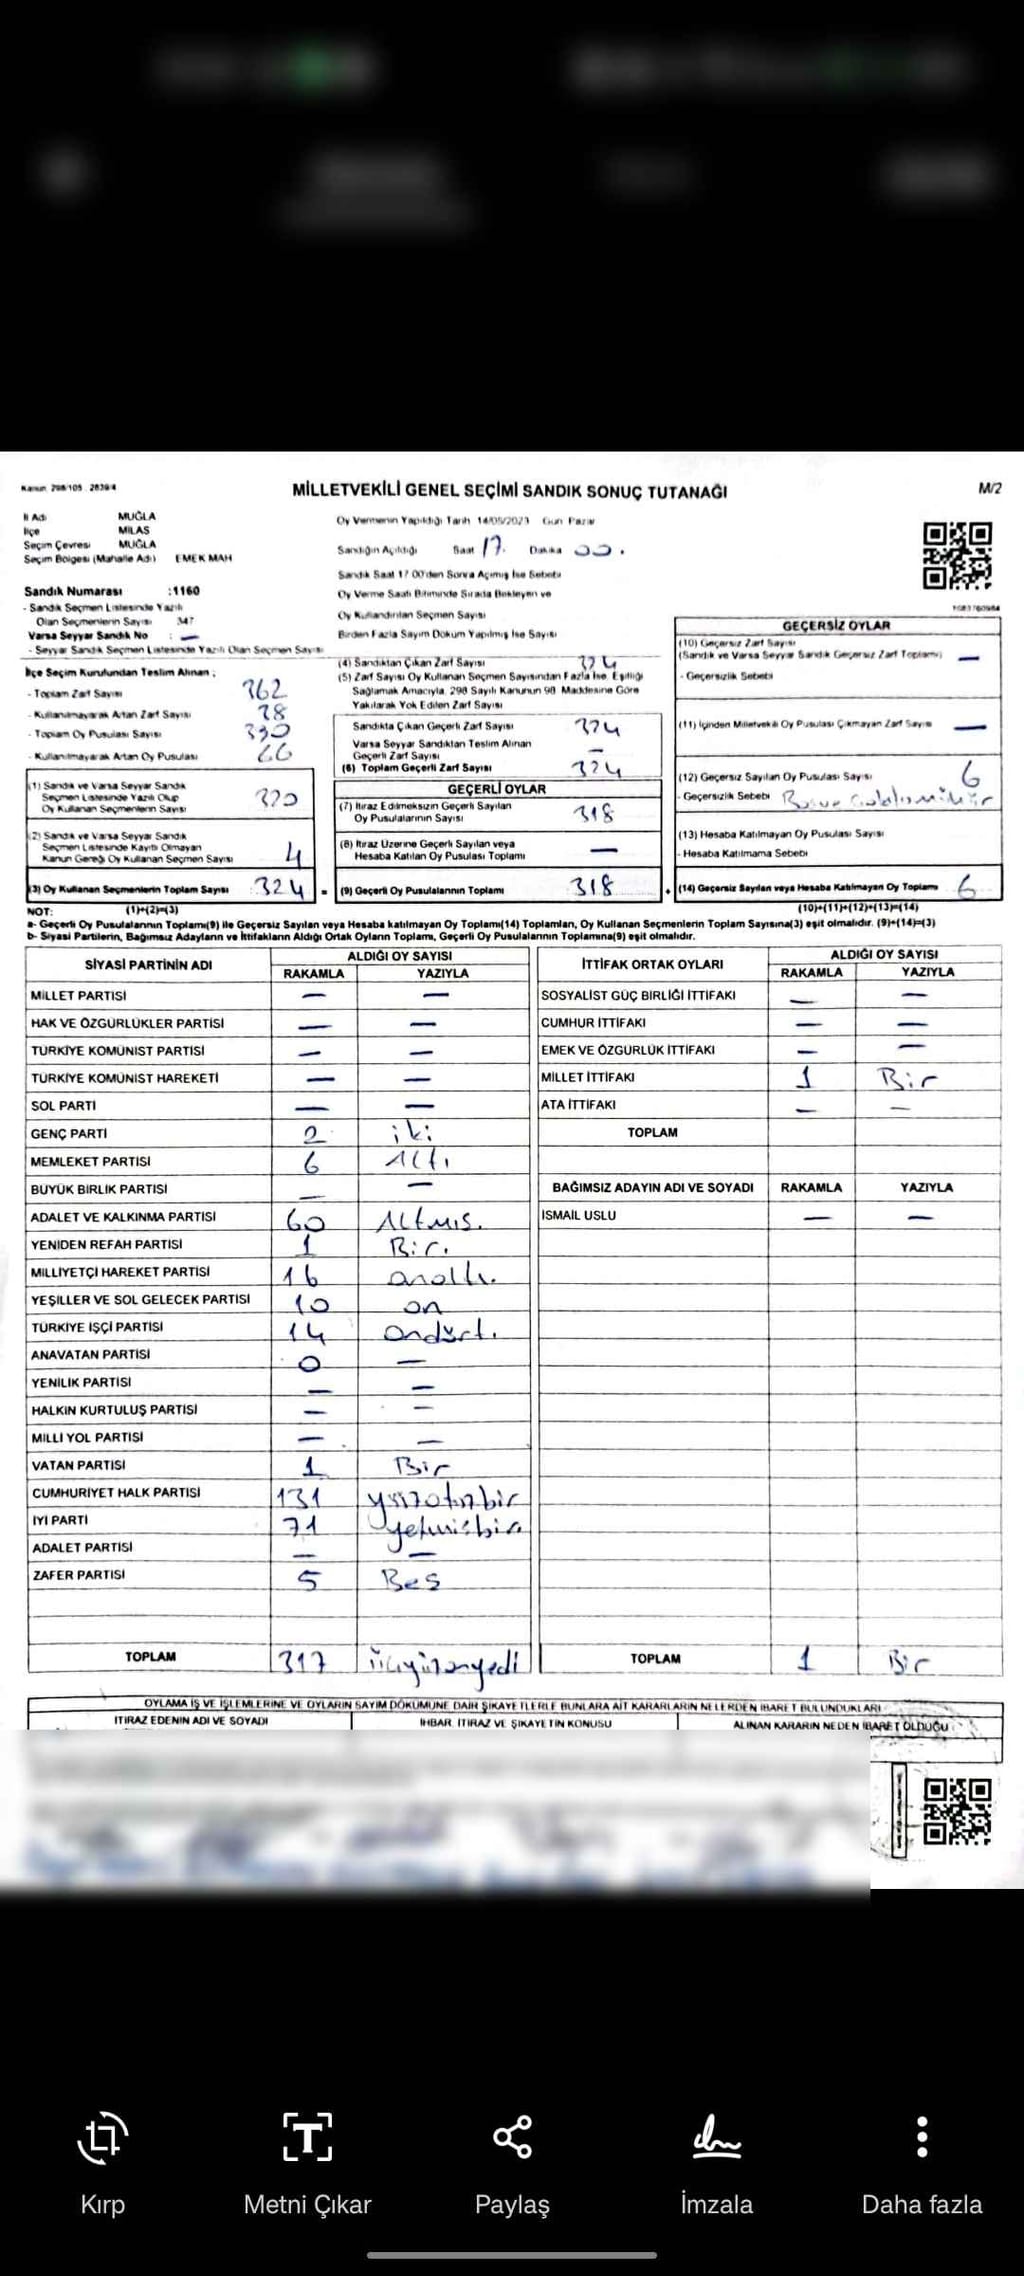 Kanun: 298/105 . 2839/4
MİLLETVEKİLİ GENEL SEÇİMİ SANDIK SONUÇ TUTANAĞI
M/2
İl Adı MUĞLA
İlçe MİLAS
Seçim Çevresi MUĞLA
Seçim Bölgesi (Mahalle Adı) EMEK MAH
Sandık Numarası :1160
- Sandık Seçmen Listesinde Yazılı
Olan Seçmenlerin Sayısı 347
Varsa Seyyar Sandık No : —
- Seyyar Sandık Seçmen Listesinde Yazılı Olan Seçmen Sayısı
Oy Vermenin Yapıldığı Tarih 14/05/2023 Gün Pazar
Sandığın Açıldığı Saat 17. Dakika 00.
Sandık Saat 17 00'den Sonra Açımış İse Sebebi
Oy Verme Saati Bitiminde Sırada Bekleyen ve
Oy Kullandırılan Seçmen Sayısı
Birden Fazla Sayım Döküm Yapılmış İse Sayısı
İlçe Seçim Kurulundan Teslim Alınan ;
- Toplam Zarf Sayısı 362
- Kullanılmayarak Artan Zarf Sayısı 38
- Toplam Oy Pusulası Sayısı 390
- Kullanılmayarak Artan Oy Pusulası 66
(1) Sandık ve Varsa Seyyar Sandık
Seçmen Listesinde Yazılı Olup
Oy Kullanan Seçmenlerin Sayısı 320
(2) Sandık ve Varsa Seyyar Sandık
Seçmen Listesinde Kayıtlı Olmayan
Kanun Gereği Oy Kullanan Seçmen Sayısı 4
(3) Oy Kullanan Seçmenlerin Toplam Sayısı 324 =
(4) Sandıktan Çıkan Zarf Sayısı 324
(5) Zarf Sayısı Oy Kullanan Seçmen Sayısından Fazla İse, Eşitliği
Sağlamak Amacıyla, 298 Sayılı Kanunun 98 Maddesine Göre
Yakılarak Yok Edilen Zarf Sayısı
Sandıkta Çıkan Geçerli Zarf Sayısı 324
Varsa Seyyar Sandıktan Teslim Alınan
Geçerli Zarf Sayısı —
(6) Toplam Geçerli Zarf Sayısı 324
GEÇERLİ OYLAR
(7) İtiraz Edilmeksizin Geçerli Sayılan
Oy Pusulalarının Sayısı 318
(8) İtiraz Üzerine Geçerli Sayılan veya
Hesaba Katılan Oy Pusulası Toplamı —
(9) Geçerli Oy Pusulalarının Toplamı 318 +
GEÇERSİZ OYLAR
(10) Geçersiz Zarf Sayısı
(Sandık ve Varsa Seyyar Sandık Geçersiz Zarf Toplamı) —
- Geçersizlik Sebebi
(11) İçinden Milletvekili Oy Pusulası Çıkmayan Zarf Sayısı —
(12) Geçersiz Sayılan Oy Pusulası Sayısı 6
- Geçersizlik Sebebi
(13) Hesaba Katılmayan Oy Pusulası Sayısı
- Hesaba Katılmama Sebebi
(14) Geçersiz Sayılan veya Hesaba Katılmayan Oy Toplamı 6
NOT: (1)+(2)=(3) (10)+(11)+(12)+(13)=(14)
a- Geçerli Oy Pusulalarının Toplamı(9) ile Geçersiz Sayılan veya Hesaba katılmayan Oy Toplamı(14) Toplamları, Oy Kullanan Seçmenlerin Toplam Sayısına(3) eşit olmalıdır. (9)+(14)=(3)
b- Siyasi Partilerin, Bağımsız Adayların ve İttifakların Aldığı Ortak Oyların Toplamı, Geçerli Oy Pusulalarının Toplamına(9) eşit olmalıdır.
SİYASİ PARTİNİN ADI ALDIĞI OY SAYISI
RAKAMLA YAZIYLA
MİLLET PARTİSİ — —
HAK VE ÖZGÜRLÜKLER PARTİSİ — —
TÜRKİYE KOMÜNİST PARTİSİ — —
TÜRKİYE KOMÜNİST HAREKETİ — —
SOL PARTİ — —
GENÇ PARTİ 2 iki
MEMLEKET PARTİSİ 6 Altı
BÜYÜK BİRLİK PARTİSİ — —
ADALET VE KALKINMA PARTİSİ 60 Altmış.
YENİDEN REFAH PARTİSİ 1 Bir.
MİLLİYETÇİ HAREKET PARTİSİ 16 onaltı.
YEŞİLLER VE SOL GELECEK PARTİSİ 10 on
TÜRKİYE İŞÇİ PARTİSİ 14 ondört.
ANAVATAN PARTİSİ 0 —
YENİLİK PARTİSİ — —
HALKIN KURTULUŞ PARTİSİ — —
MİLLİ YOL PARTİSİ — —
VATAN PARTİSİ 1 Bir
CUMHURİYET HALK PARTİSİ 131 yüzotuzbir
İYİ PARTİ 71 yetmişbir
ADALET PARTİSİ — —
ZAFER PARTİSİ 5 Beş
TOPLAM 317 üçyüzonyedi
İTTİFAK ORTAK OYLARI ALDIĞI OY SAYISI
RAKAMLA YAZIYLA
SOSYALİST GÜÇ BİRLİĞİ İTTİFAKI — —
CUMHUR İTTİFAKI — —
EMEK VE ÖZGÜRLÜK İTTİFAKI — —
MİLLET İTTİFAKI 1 Bir
ATA İTTİFAKI — —
TOPLAM
BAĞIMSIZ ADAYIN ADI VE SOYADI RAKAMLA YAZIYLA
İSMAİL USLU — —
TOPLAM 1 Bir
OYLAMA İŞ VE İŞLEMLERİNE VE OYLARIN SAYIM DÖKÜMÜNE DAİR ŞİKAYETLERLE BUNLARA AİT KARARLARIN NELERDEN İBARET BULUNDUKLARI
İTİRAZ EDENİN ADI VE SOYADI İHBAR, İTİRAZ VE ŞİKAYETİN KONUSU ALINAN KARARIN NEDEN İBARET OLDUĞU
Kırp
Metni Çıkar
Paylaş
İmzala
Daha fazla